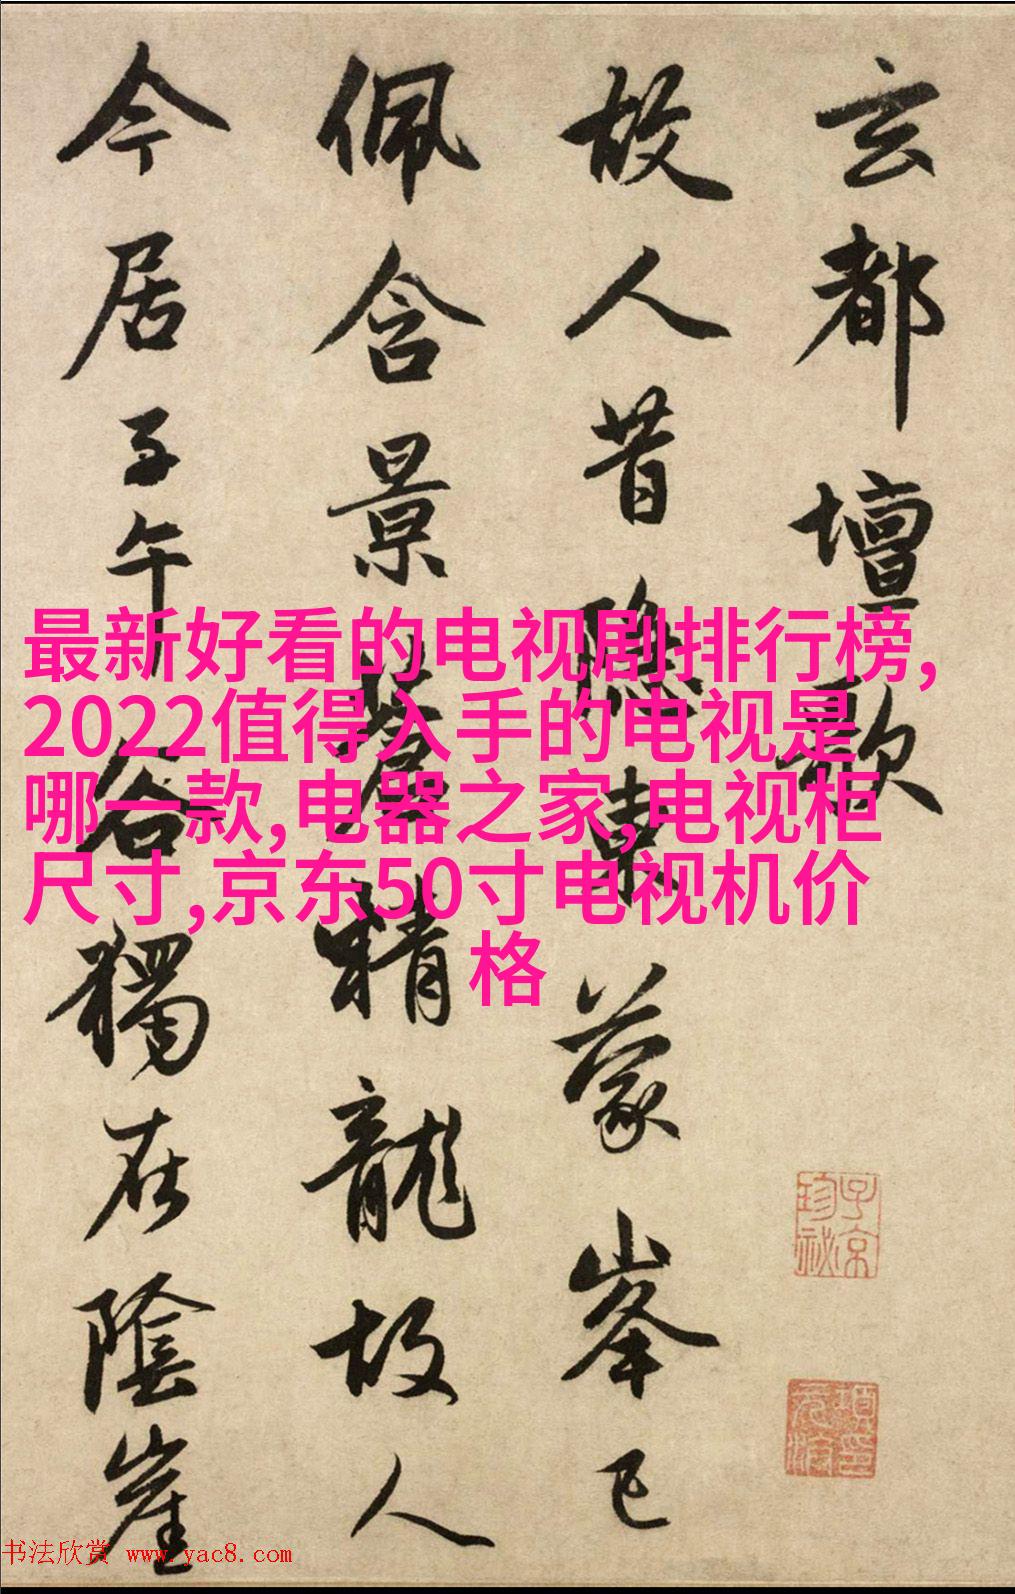 玄都壇歌
故人昔隱東蒙峯已
佩含景蒼精龍故人
今居子午谷獨在陰崖
最新好看的电视剧排行榜,
2022值得入手的电视是
哪一款,电器之家,电视柜
尺寸,京东50寸电视机价
格
子京珍祕
书法欣赏 www.yac8.com